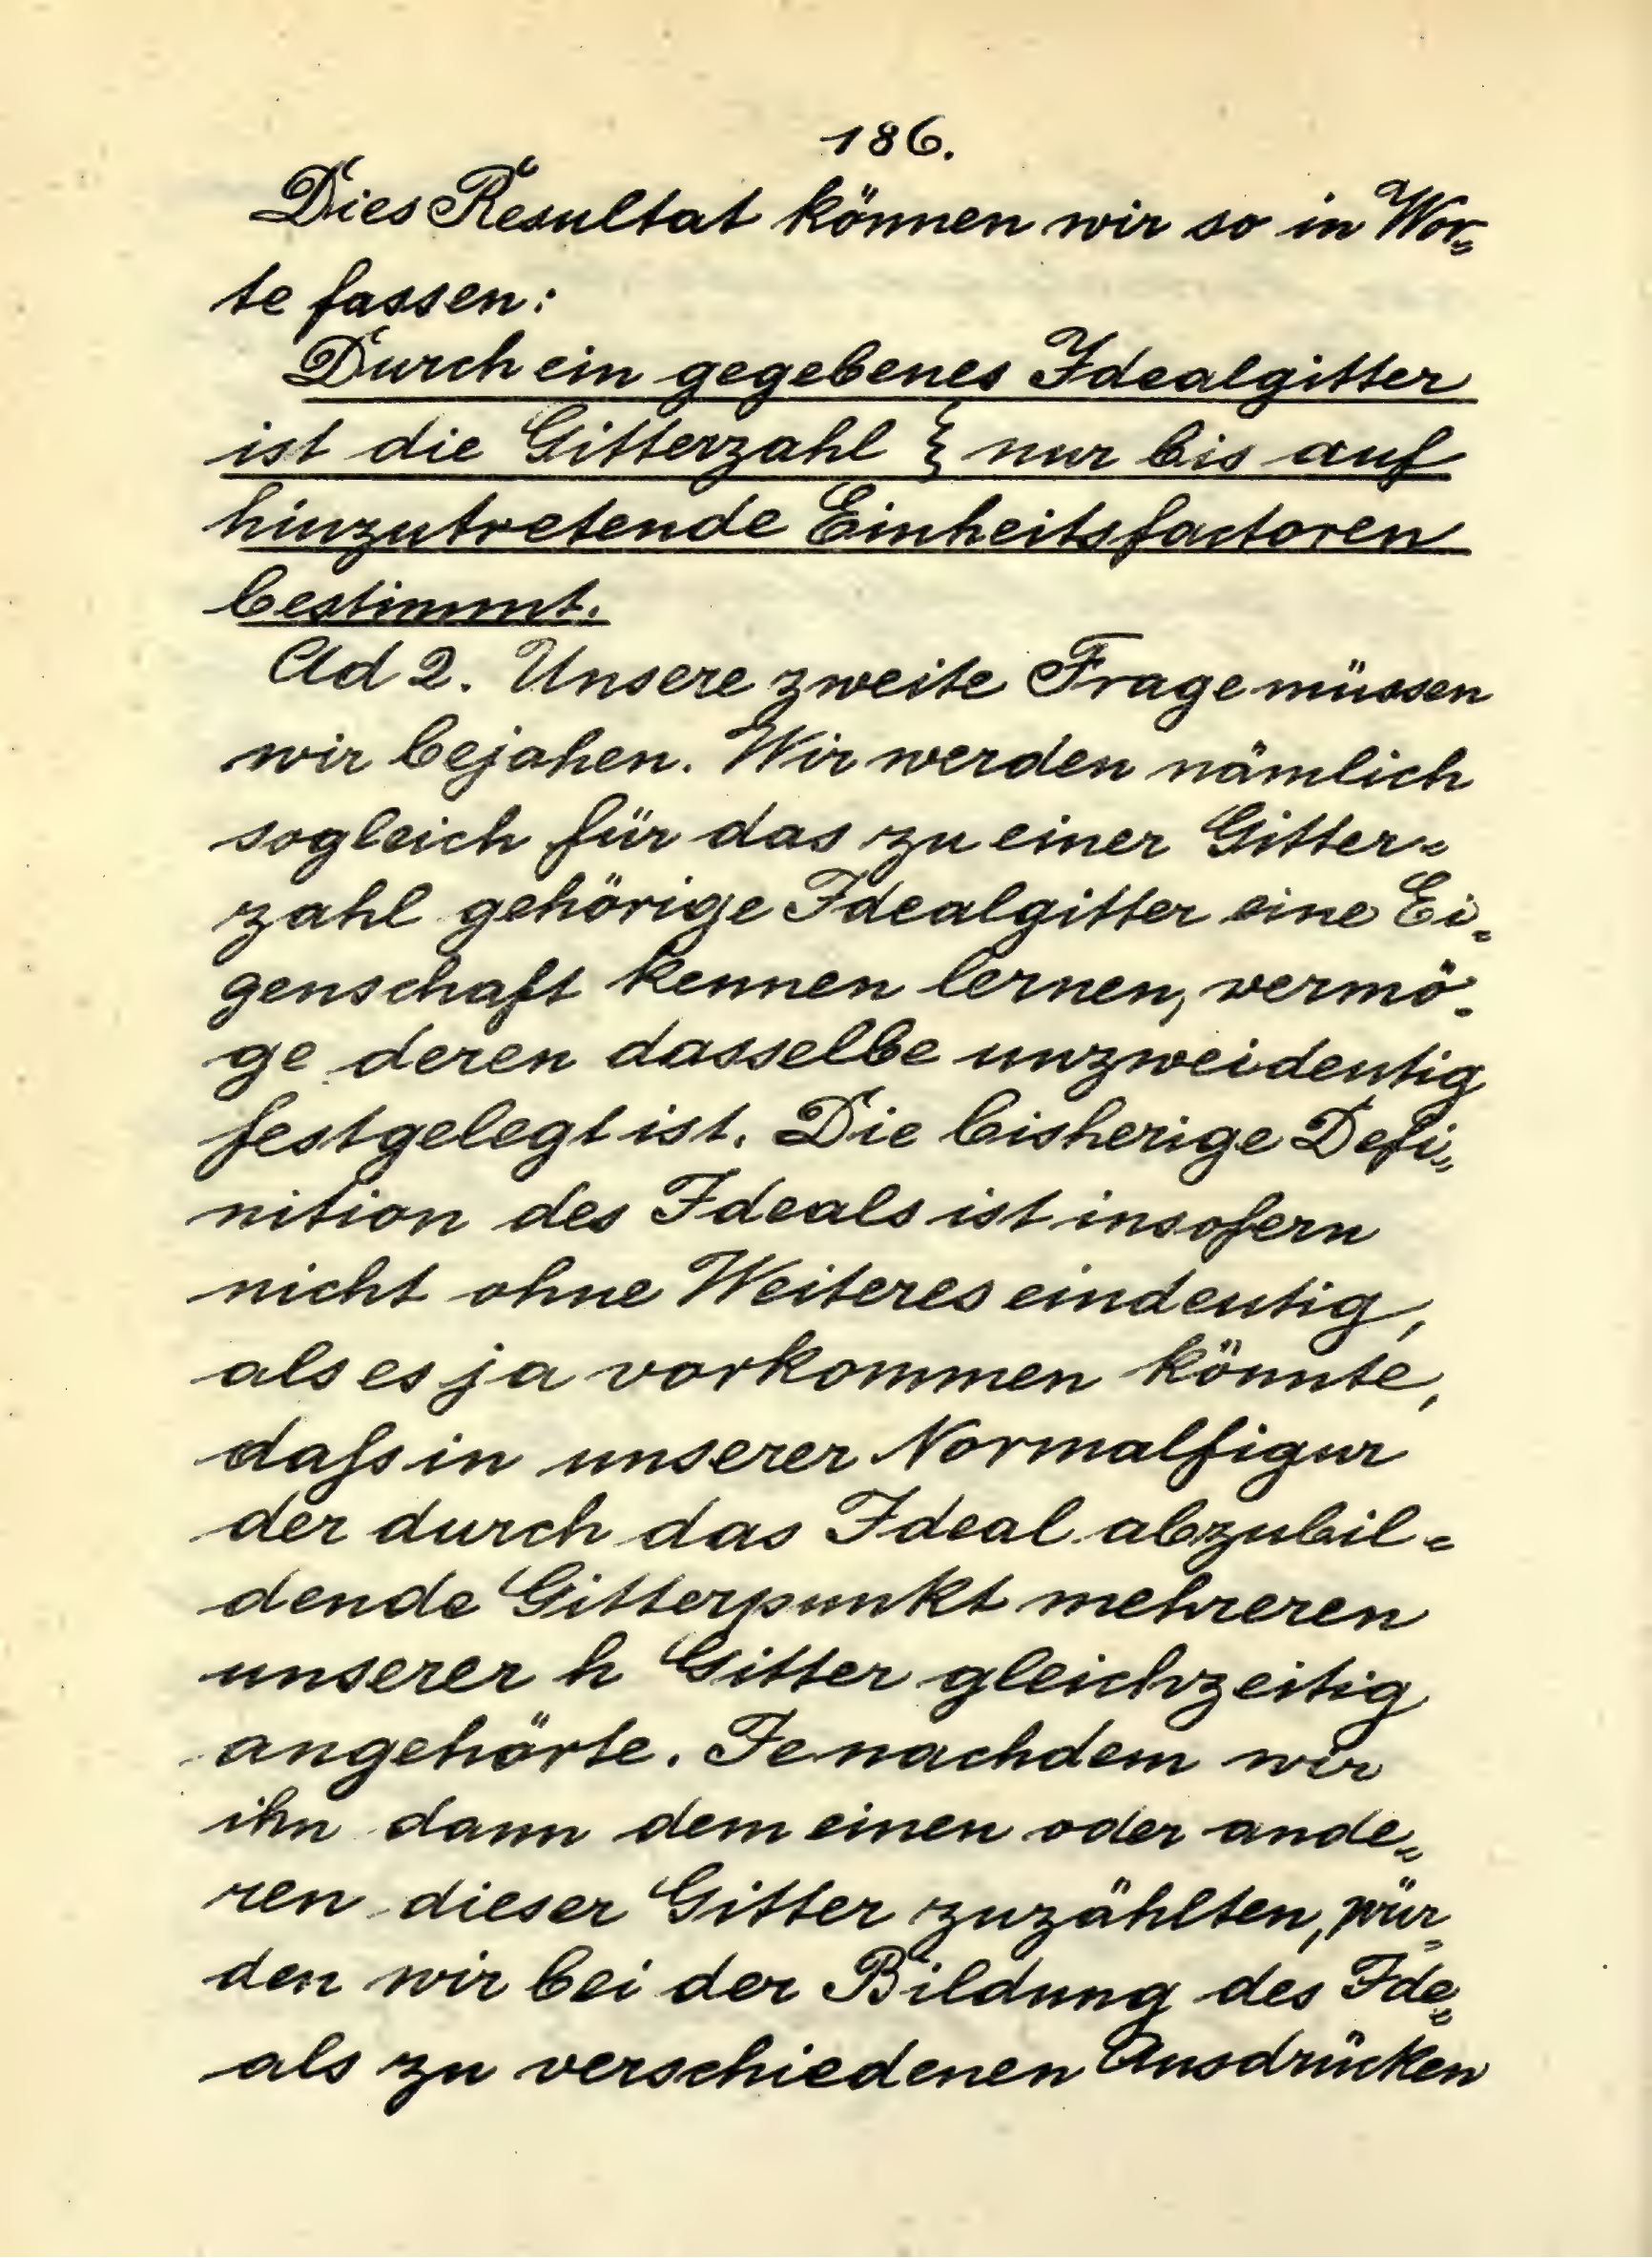 186.
Dies Resultat können wir so in Wor=
te fassen:
Durch ein gegebenes Idealgitter
ist die Gitterzahl ξ nur bis auf
hinzutretende Einheitsfactoren
bestimmt.
Ad 2. Unsere zweite Frage müssen
wir bejahen. Wir werden nämlich
sogleich für das zu einer Gitter=
zahl gehörige Idealgitter eine Ei=
genschaft kennen lernen, vermö=
ge deren dasselbe unzweideutig
festgelegt ist. Die bisherige Defi=
nition des Ideals ist insofern
nicht ohne Weiteres eindeutig,
als es ja vorkommen könnte,
daſs in unserer Normalfigur
der durch das Ideal abzubil=
dende Gitterpunkt mehreren
unserer h Gitter gleichzeitig
angehörte. Je nachdem wir
ihn dann dem einen oder ande=
ren dieser Gitter zuzählten, wür=
den wir bei der Bildung des Ide=
als zu verschiedenen Ausdrücken